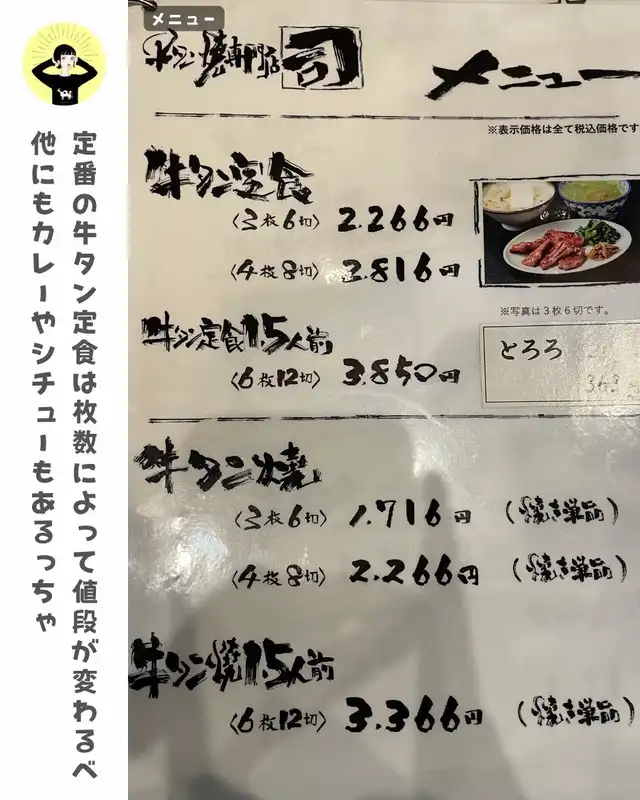 メニュー
定番の牛タン定食は枚数によって値段が変わるべ
他にもカレーやシチューもあるっちゃ
牛タン焼専門店 司
メニュー
※表示価格は全て税込価格です
牛タン定食
〈3枚6切〉 2.266円
〈4枚8切〉 2.816円
※写真は3枚6切です。
牛タン定食1.5人前
〈6枚12切〉 3.850円
とろろ
牛タン焼
〈3枚6切〉 1.716円 (焼き単品)
〈4枚8切〉 2.266円 (焼き単品)
牛タン焼1.5人前
〈6枚12切〉 3.366円 (焼き単品)